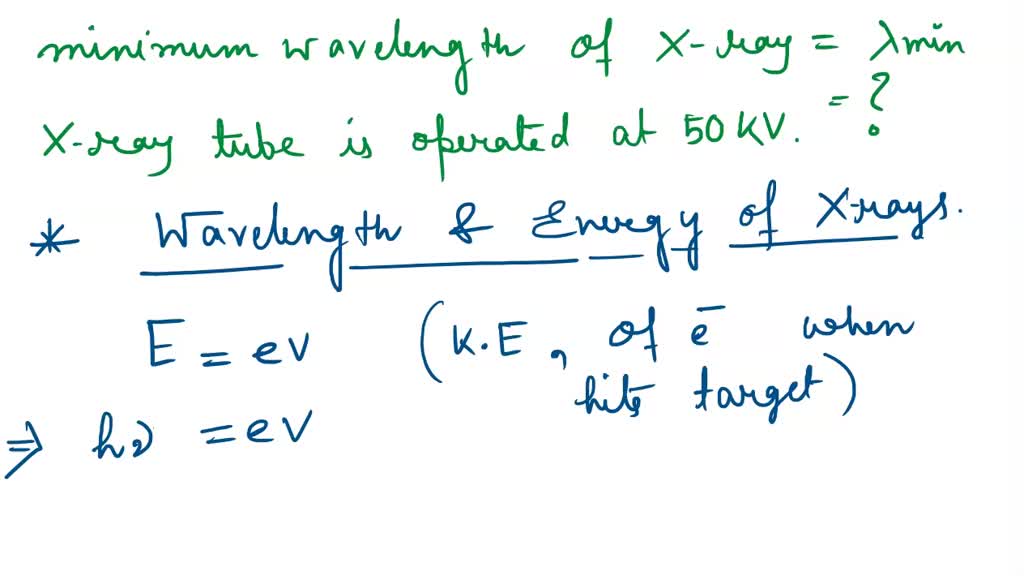 minimum wavelength of X-ray = λmin
= ?
X-ray tube is operated at 50 KV.
* Wavelength & Energy of X-rays.
E = eV (K.E, of e⁻ when
hits target)
⇒ hν = eV